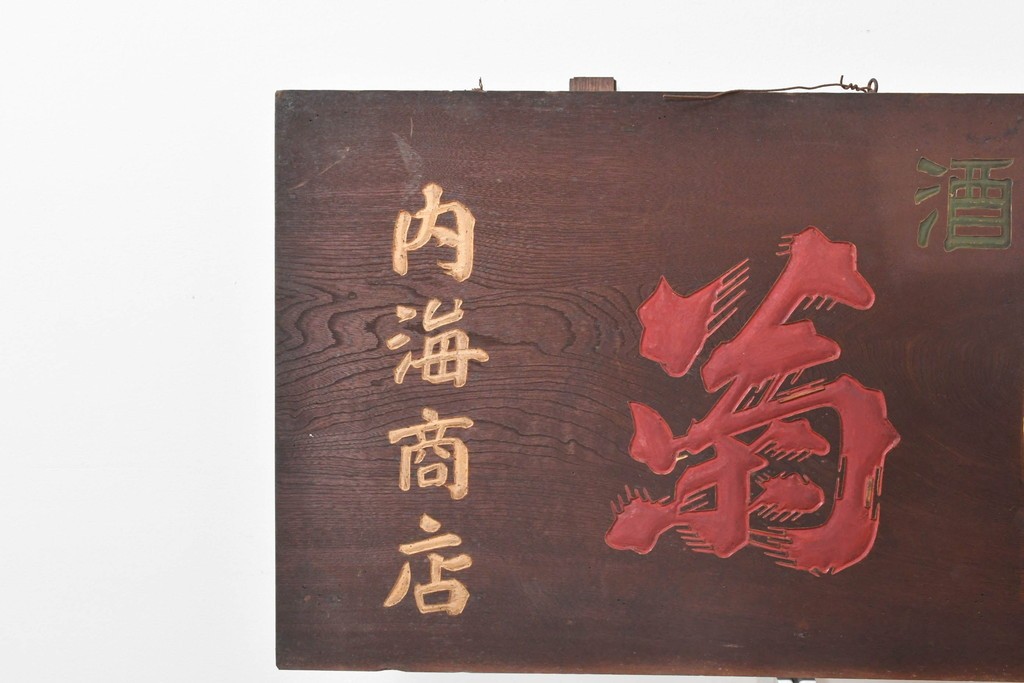 酒
菊
内海商店